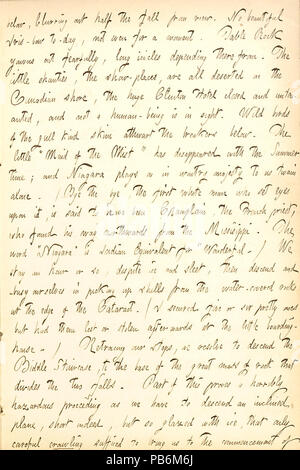 below, blurring out half the fall from view. No beautiful
Iris-bow to-day, not even for a moment. Table Rock
yawns out fearfully, long icicles depending therefrom. The
little shanties, the show-places, are all deserted on the
Canadian shore, the huge Clifton Hotel closed and unten-
anted, and not a human-being is in sight. Wild birds
of the gull kind skim athwart the breakers below. The
little "Maid of the Mist" has disappeared with the Summer
time; and Niagara plays in wintry majesty to us twain
alone. (Bye the bye, the first white man who set eyes
upon it, is said to have been Champlain, the French priest
who found his way northwards from the Mississippi. The
word Niagara is Indian Equivalent for "Wonderful.") We
stay an hour or so, despite ice and sleet, then descend and
busy ourselves in picking up shells from the water-covered rocks
at the edge of the Cataract. (I secured five or six pretty ones
but had them lost or stolen afterwards at the boarding
house.) Retracing our steps, we resolve to descend the
Biddle Staircase, to the base of the great mass of rock that
divides the two falls. Part of this proves a horribly
hazardous proceeding as we have to descend an inclined
plane, short indeed, but so glazed with ice, that only
careful crawling sufficed to bring us to the commencement of
alamy
alamy
Image ID: PB6M6J
www.alamy.com